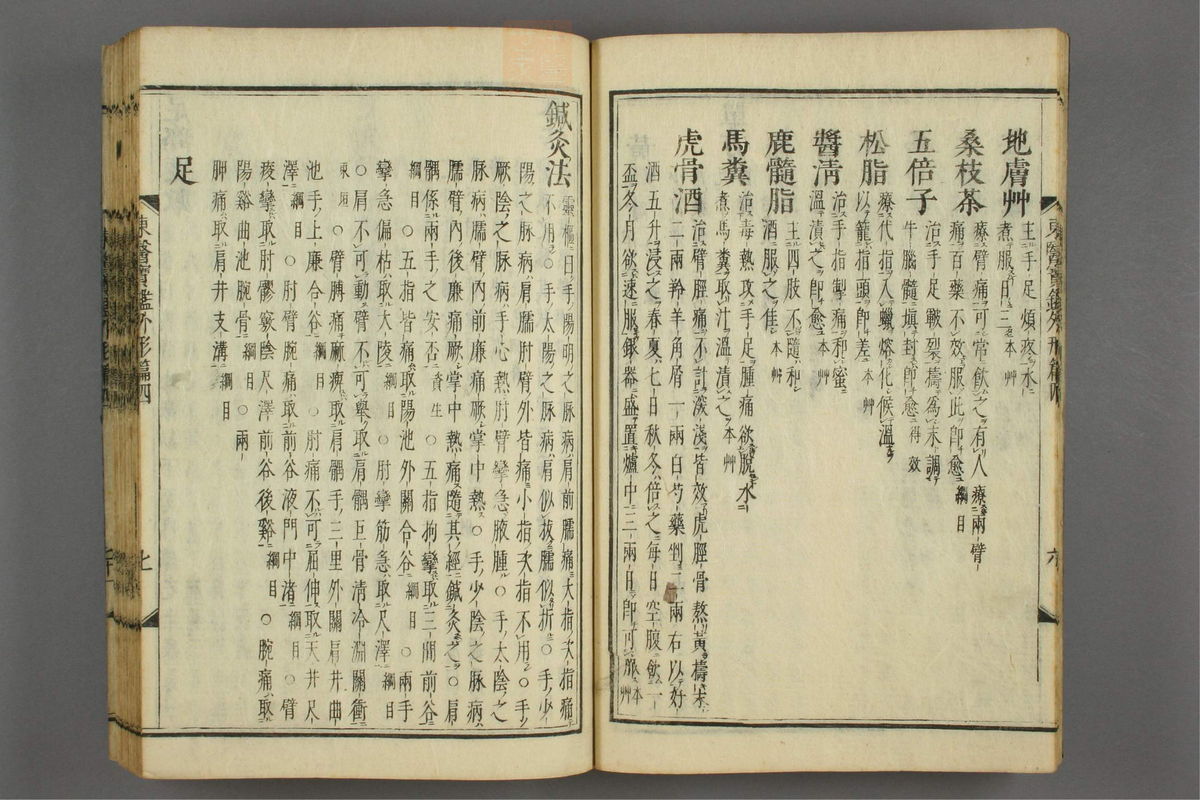 地膚艸 主手足煩疼水
煮服日三 本艸
桑枝茶 療臂痛可常飲之有人療兩臂
痛百藥不效服此卽愈 綱目
五倍子 治手足皸裂擣爲末調
牛腦髓塡封卽愈 得效
松脂 療代指入蠟熔化候溫
以籠指頭卽差 本艸
醬淸 治手指掣痛和蜜
溫漬之卽愈 本艸
鹿髓脂 主四肢不隨和
酒服之佳 本艸
馬糞 治毒熱攻手足腫痛欲脫水
煮馬糞取汁溫漬之 本艸
虎骨酒 治臂脛痛不計深淺皆效虎脛骨熬黃擣末
二兩羚羊角屑一兩白芍藥剉二兩右以好
酒五升浸之春夏七日秋冬倍之每日空腹飮一
盃冬月欲速服銀器盛置爐中二三兩日卽可服 本艸
東醫寶鑑外形篇四 六
鍼灸法 靈樞曰手陽明之脉病肩前臑痛大指次指痛
不用○手太陽之脉病肩似拔臑似折○手少
陽之脉病肩臑肘臂外皆痛小指次指不用○手
厥陰之脉病手心熱肘臂攣急腋腫○手太陰之
脉病臑臂內前廉痛厥掌中熱○手少陰之脉病
臑臂內後廉痛厥掌中熱痛隨其經鍼灸之○肩
髃係兩手之安否 資生 ○五指拘攣取三間前谷
綱目 ○五指皆痛取陽池外關合谷 綱目 ○兩手
攣急偏枯取大陵 綱目 ○肘攣筋急取尺澤 綱目
○肩不可動臂不可擧取肩髃巨骨淸冷淵關衝
東垣 ○臂膊痛麻痺取肩髃手三里外關肩井曲
池手上廉合谷 綱目 ○肘痛不可屈伸取天井尺
澤 綱目 ○肘臂腕痛取前谷液門中渚 綱目 ○臂
痠攣取肘髎竅陰尺澤前谷後谿 綱目 ○腕痛取
陽谿曲池腕骨 綱目 ○兩
胛痛取肩井支溝 綱目
足
東醫寶鑑外形篇四 七